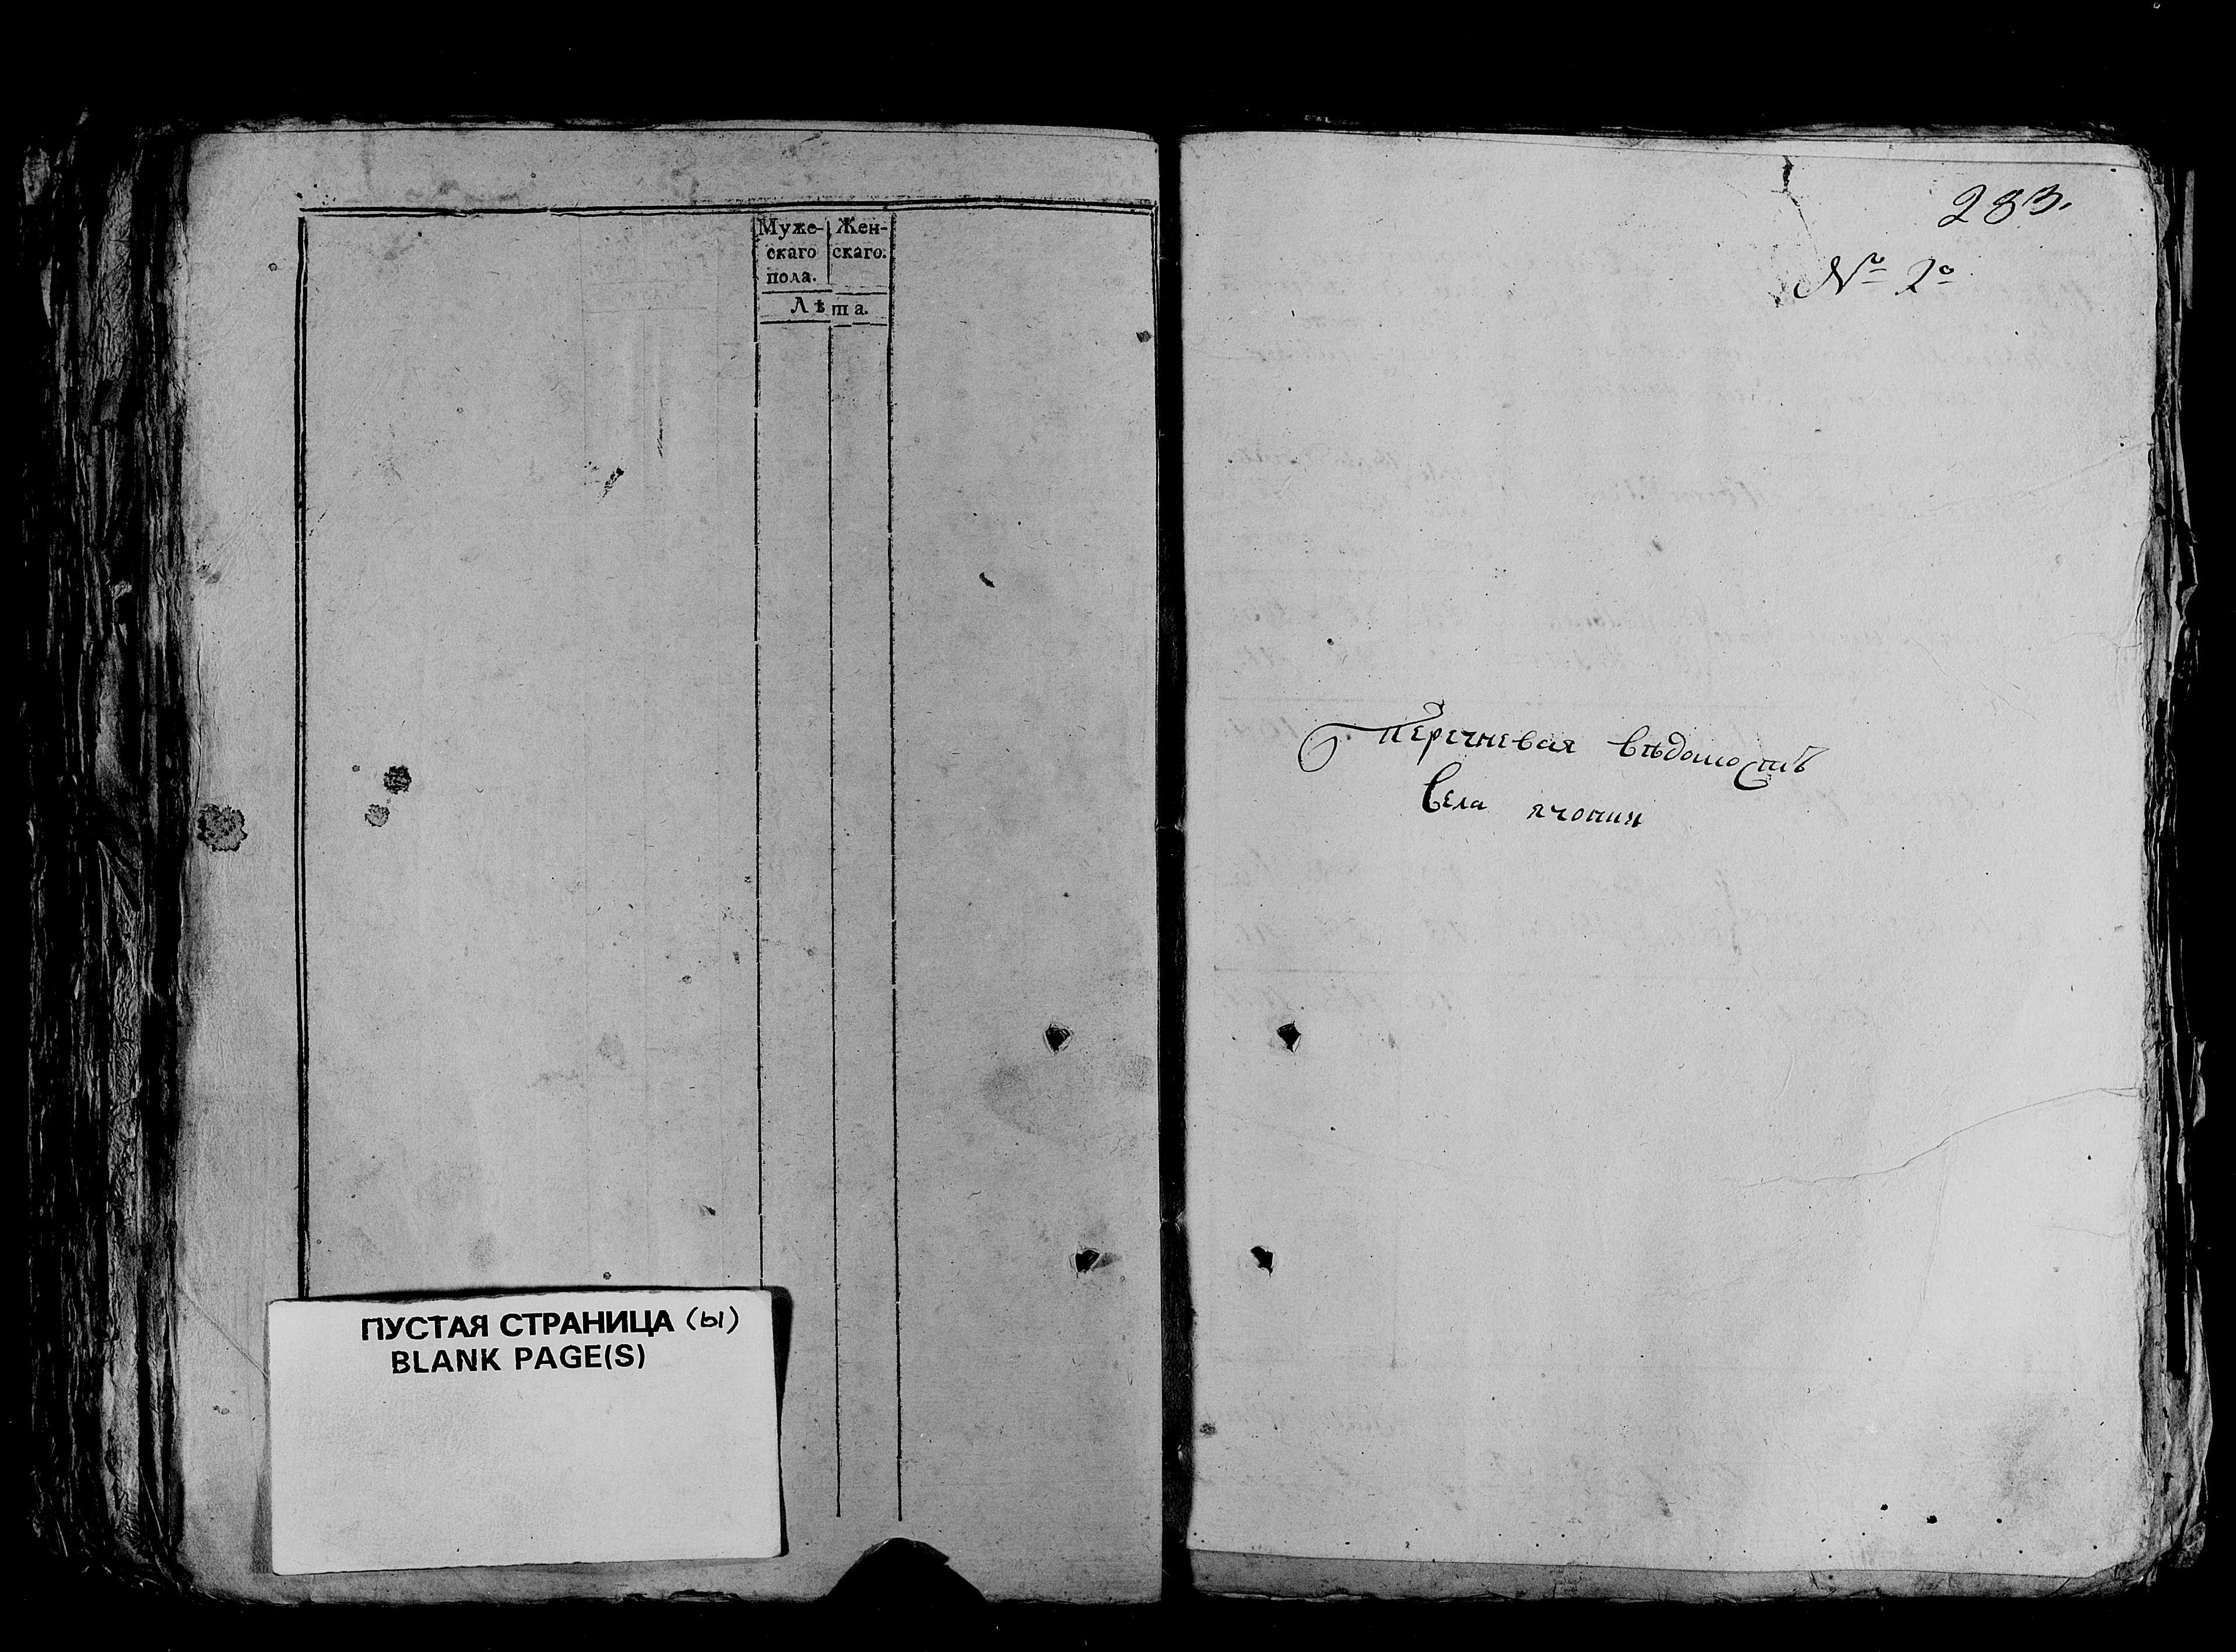 Муже-
скаго
пола.
Жен-
скаго.
Лѣта.
ПУСТАЯ СТРАНИЦА (ы)
BLANK PAGE(S)
283.
№ 2º
Перечневая вѣдомость
Села